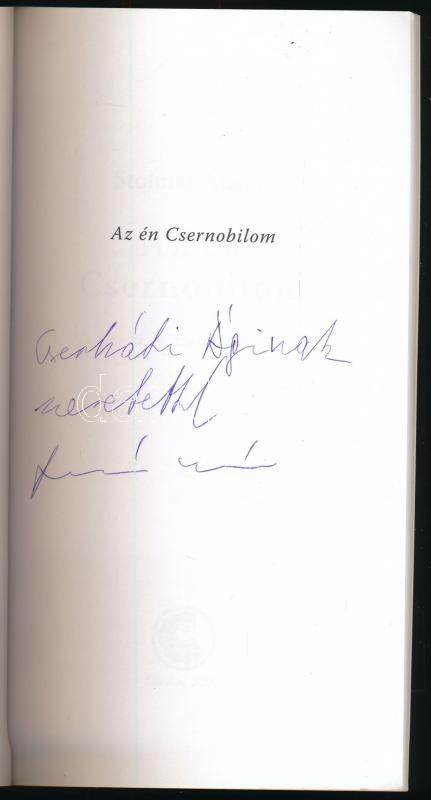 Az én Csernobilom
Cserháti Áginak
szeretettel